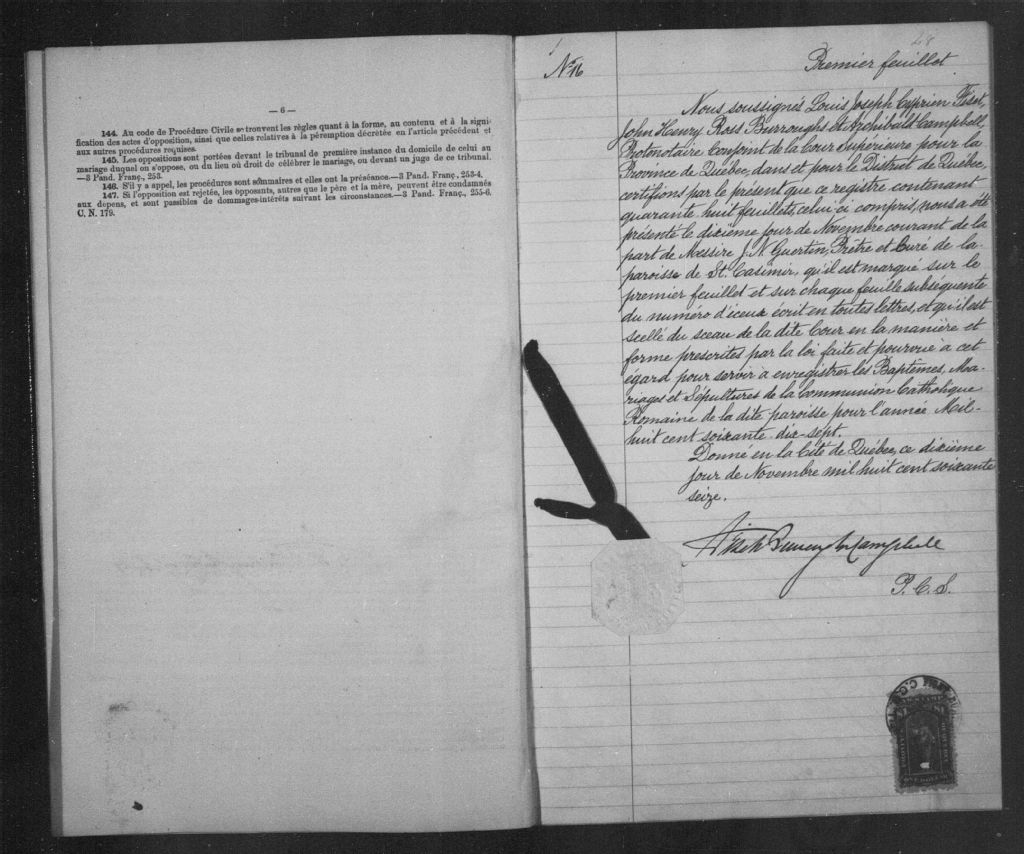 — 6 —
144. Au code de Procédure Civile se trouvent les règles quant à la forme, au contenu et à la signi-
fication des actes d'opposition, ainsi que celles relatives à la péremption décrétée en l'article précédent et
aux autres procédures requises.
145. Les oppositions sont portées devant le tribunal de première instance du domicile de celui au
mariage duquel on s'oppose, ou du lieu où droit de célébrer le mariage, ou devant un juge de ce tribunal.
—3 Pand. Franç., 253.
146. S'il y a appel, les procédures sont sommaires et elles ont la préséance.—3 Pand. Franç., 253-4.
147. Si l'opposition est rejetée, les opposants, autres que le père et la mère, peuvent être condamnés
aux depens, et sont passibles de dommages-intérêts suivant les circonstances.—3 Pand. Franç., 255-6.
C. N. 179.
48
No 16
Premier feuillet.
Nous soussignés Louis Joseph Cyprien Fiset,
John Henry Ross Burroughs et Archibald Campbell,
Protonotaire Conjoint de la Cour Superieure pour la
Province de Québec, dans et pour le District de Québec,
certifions par le présent que ce registre contenant
quarante huit feuillets, celui ci compris, nous a été
présenté le dixième jour de Novembre courant de la
part de Messire J. N. Guertin, Prêtre et Curé de la
paroisse de St. Casimir, qu'il est marqué sur le
premier feuillet et sur chaque feuille subséquente
du numéro d'iceux écrit en toutes lettres, et qu'il est
scellé du sceau de la dite Cour en la manière et
forme prescrites par la loi faite et pourvue à cet
égard pour servir a enregistrer les Baptêmes, Ma-
riages et Sépultures de la Communion Catholique
Romaine de la dite paroisse pour l'année Mil-
huit cent soixante-dix-sept.
Donné en la Cité de Québec, ce dixième
jour de Novembre mil huit cent soixante
seize.
Fiset Burroughs Campbell
P. C. S.